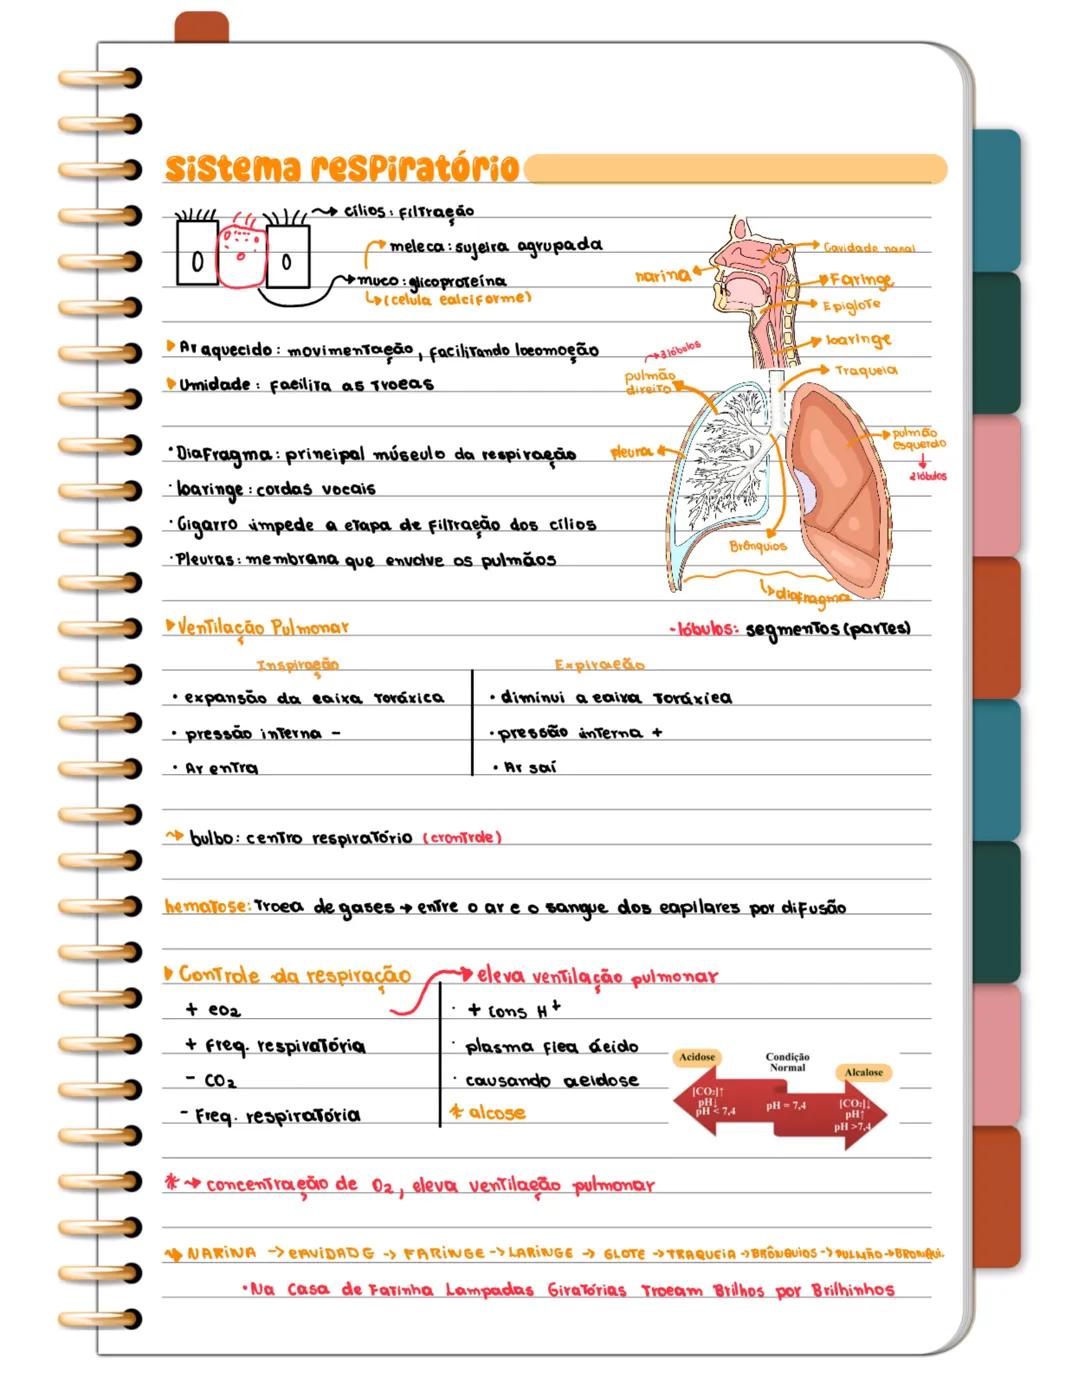 sistema respiratório
cílios: filtração
meleca: sujeira agrupada
muco: glicoproteína
(celula calciforme)
Ar aquecido: movimentação, facilitando locomoção
Umidade: facilita as trocas
• Diafragma: principal músculo da respiração
• laringe: cordas vocais
• Cigarro impede a etapa de filtração dos cílios
• Pleuras: membrana que envolve os pulmãos
narina
Cavidade nasal
Faringe
Epiglote
laringe
Traqueia
3 lóbulos
pulmão
direito
pleura
pulmão
esquerdo
2 lóbulos
Brônquios
diafragma
- lóbulos: segmentos (partes)
Ventilação Pulmonar
Inspiração
• expansão da caixa toráxica
• pressão interna -
• Ar entra
Expiração
• diminui a caixa toráxica
• pressão interna +
• Ar saí
bulbo: centro respiratório (crontrole)
hematose: Troca de gases → entre o ar e o sangue dos capilares por difusão
Controle da respiração
+ CO2
+ freq. respiratória
- CO2
- Freq. respiratória
eleva ventilação pulmonar
• + íons H+
• plasma fica ácido
• causando acidose
* alcose
Acidose
Condição
Normal
Alcalose
[CO2]↑
pH↓
pH < 7,4
pH = 7,4
[CO2]↓
pH↑
pH >7,4
* → concentração de O2, eleva ventilação pulmonar
NARINA -> CAVIDADE -> FARINGE -> LARINGE -> GLOTE -> TRAQUEIA -> BRÔNQUIOS -> PULMÃO -> BRONQUI.
• Na Casa de Farinha Lampadas Giratórias Trocam Brilhos por Brilhinhos